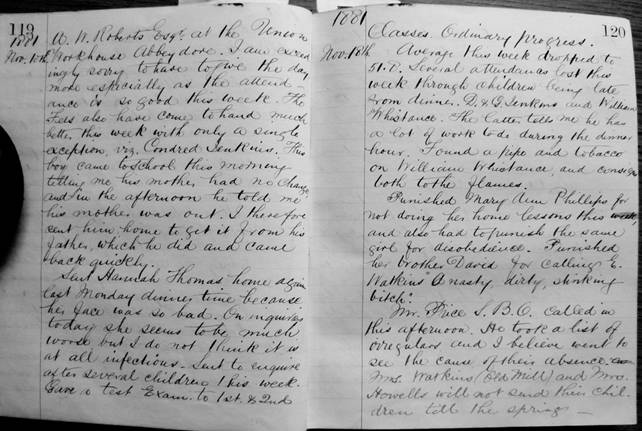 119
1881
Nov. 10th W. N. Roberts Esqr. at the Union
Workhouse Abbeydore. I am exceed
ingly sorry to have to give the day
more especially as the attend-
ance is so good this week. The
Fees also have come to hand much
better this week with only a single
exception, viz. Condred Jenkins. This
boy came to school this morning
telling me his mother had no change
and in the afternoon he told me
his mother was out. I therefore
sent him home to get it from his
father, which he did and came
back quickly.
Sent Hannah Thomas home again
last Monday dinner time because
her face was so bad. On inquiries
today she seems to be much
worse but I do not think it is
at all infectious. Sent to enquire
after several children this week.
Gave a test Exam. to 1st. & 2nd
1881
120
Classes. Ordinary progress.
Nov. 18th Average this week dropped to
51.8. Several attendances lost this
week through children being late
from dinner. D. & G. Jenkins and William
Whistance. The latter tells me he has
a lot of work to do during the dinner
hour. Found a pipe and tobacco
on William Whistance, and consign
both to the flames.
Punished Mary Ann Phillips for
not doing her home lessons this week,
and also had to punish the same
girl for disobedience. Punished
her brother David for calling E.
Watkins "A nasty, dirty, stinking
bitch".
Mr. Price S. B. O. called in
this afternoon. He took a list of
irregulars and I believe went to
see the cause of their absence.
Mrs. Watkins (Old Mill) and Mrs.
Howells will not send their chil-
dren till the spring —